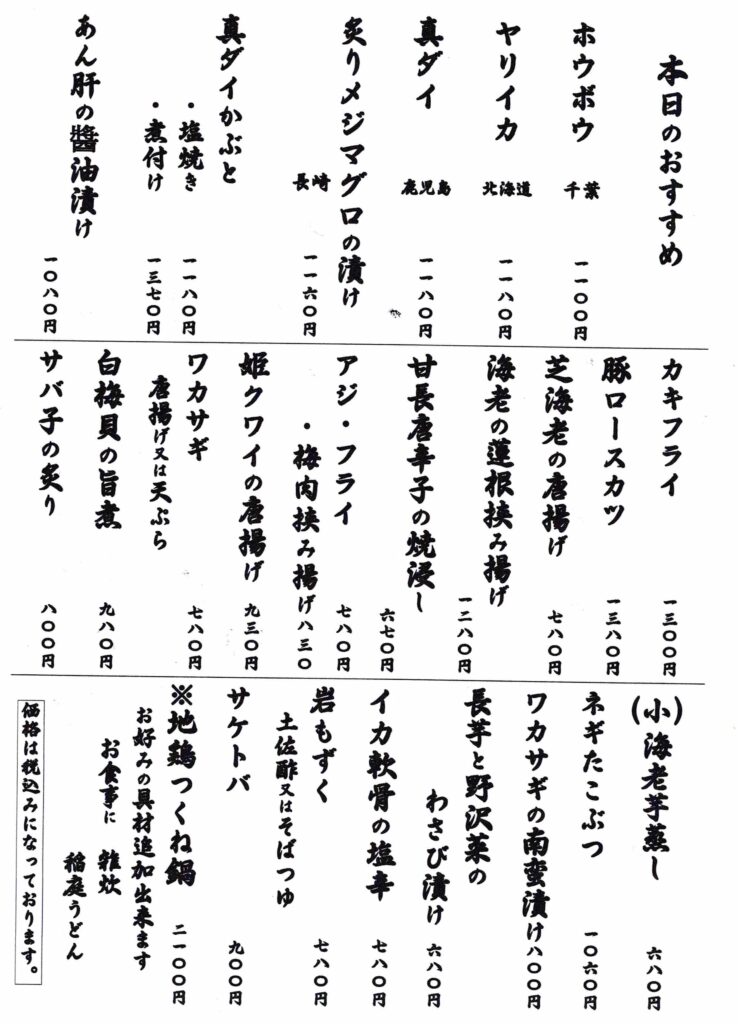 本日のおすすめ
ホウボウ 千葉 一一〇〇円
ヤリイカ 北海道 一一八〇円
真ダイ 鹿児島 一一八〇円
炙りメジマグロの漬け
長崎 一一六〇円
真ダイかぶと
・塩焼き 一一八〇円
・煮付け 一三七〇円
あん肝の醬油漬け
一〇八〇円
カキフライ 一三〇〇円
豚ロースカツ 一三八〇円
芝海老の唐揚げ 七八〇円
海老の蓮根挟み揚げ
一二八〇円
甘長唐辛子の焼浸し
六七〇円
アジ・フライ 七八〇円
・梅肉挟み揚げ八三〇
姫クワイの唐揚げ 九三〇円
ワカサギ 七八〇円
唐揚げ又は天ぷら
白梅貝の旨煮 九八〇円
サバ子の炙り 八〇〇円
(小)海老芋蒸し 六八〇円
ネギたこぶつ 一〇六〇円
ワカサギの南蛮漬け八〇〇円
長芋と野沢菜の
わさび漬け 六八〇円
イカ軟骨の塩辛 七八〇円
岩もずく 七八〇円
土佐酢又はそばつゆ
サケトバ 九〇〇円
※地鶏つくね鍋 二一〇〇円
お好みの具材追加出来ます
お食事に 雑炊
稲庭うどん
価格は税込みになっております。